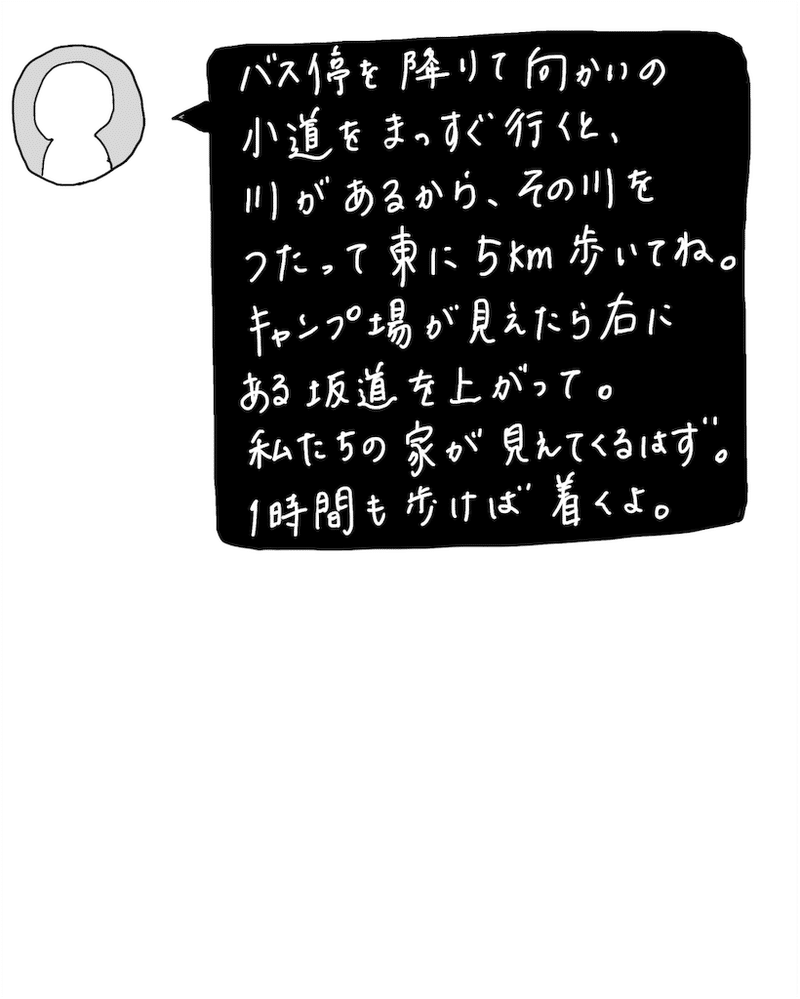 バス停を降りて向かいの
小道をまっすぐ行くと、
川があるから、その川を
つたって東に5km歩いてね。
キャンプ場が見えたら右に
ある坂道を上がって。
私たちの家が見えてくるはず。
1時間も歩けば着くよ。